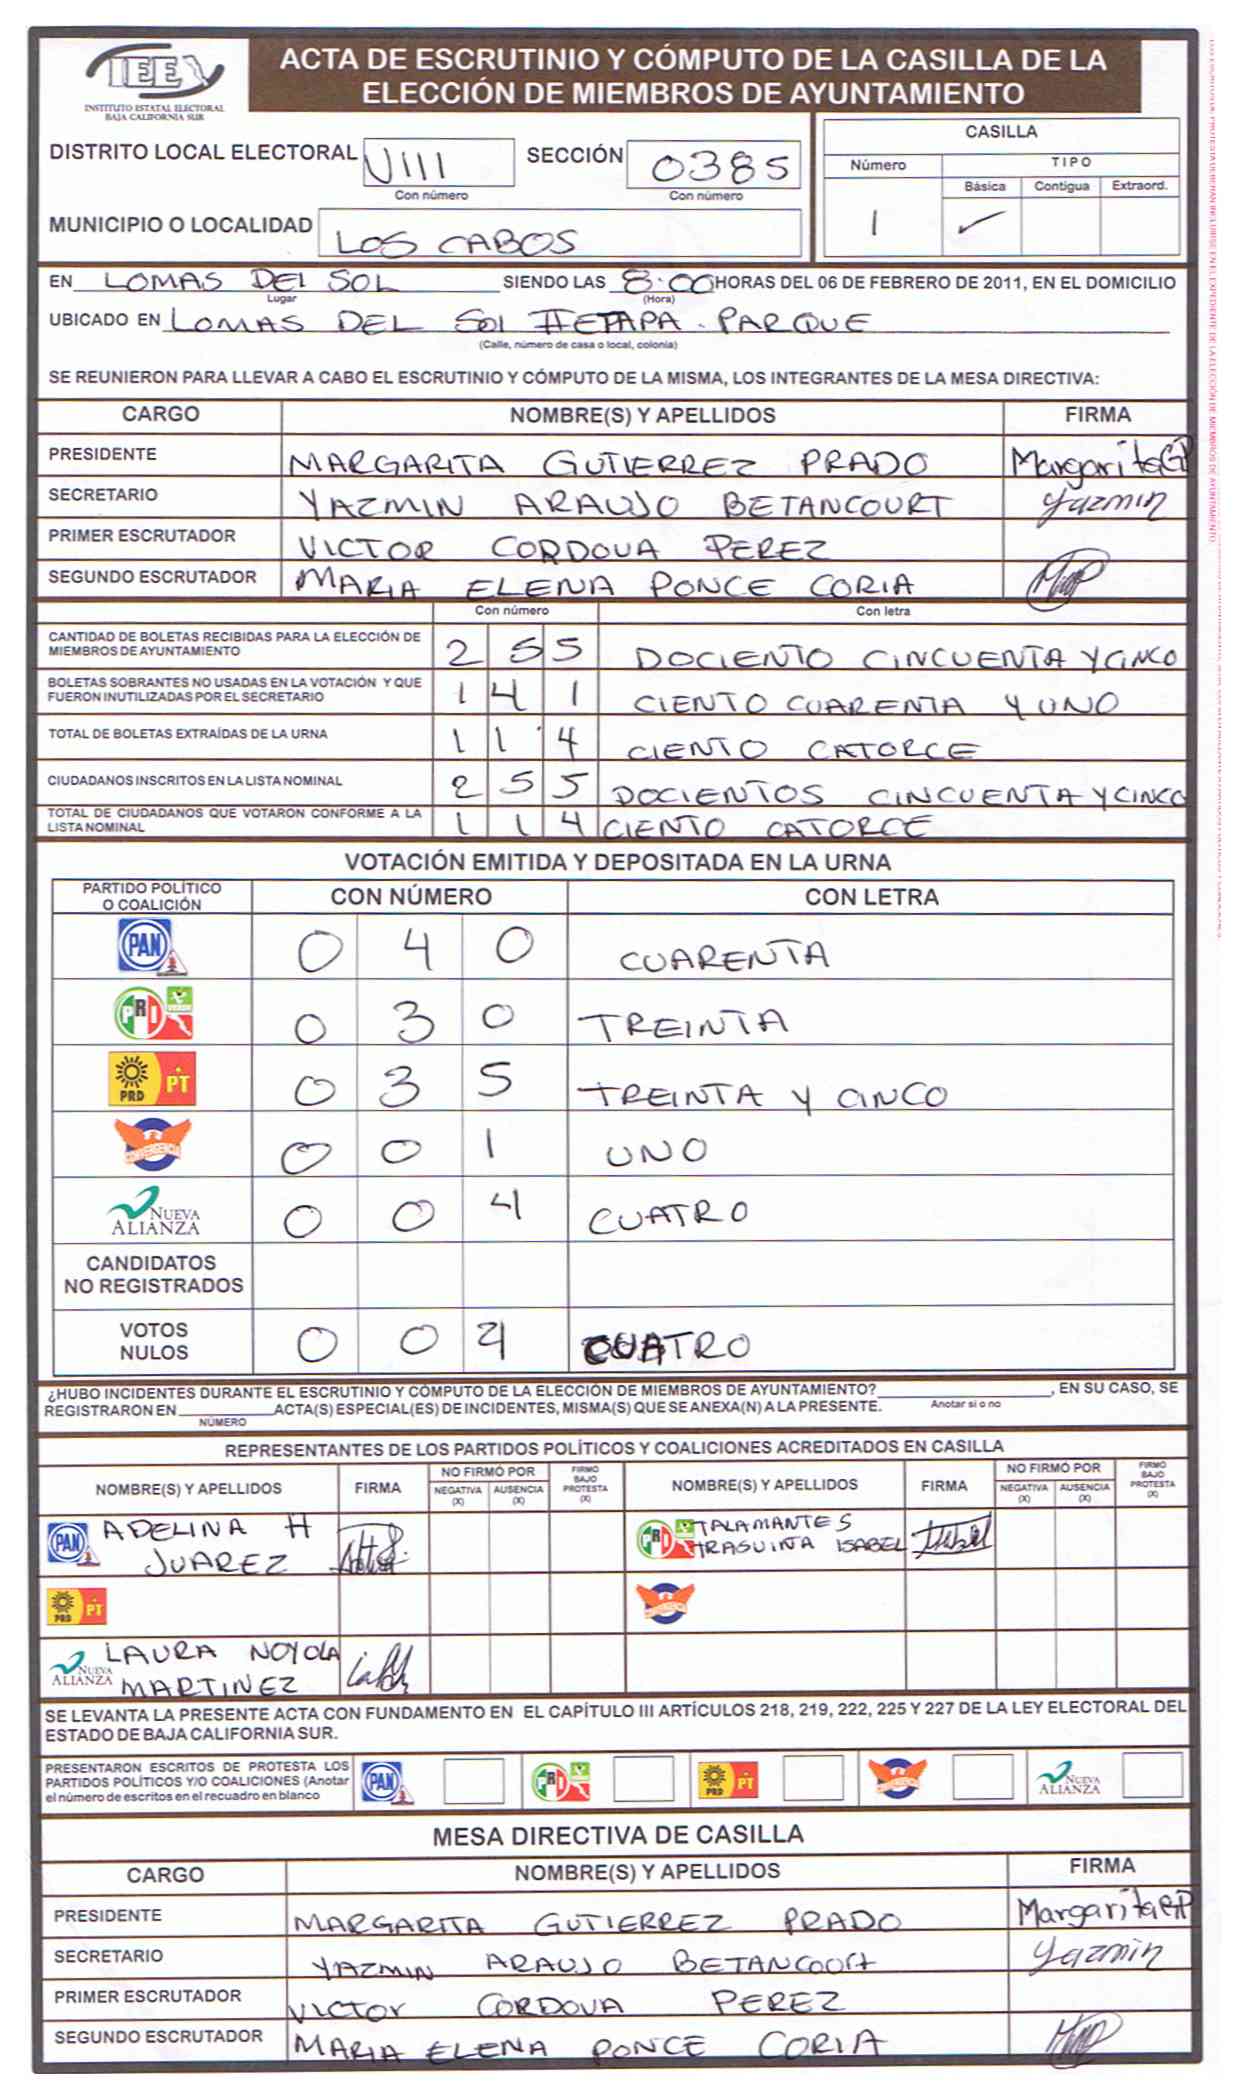 IEEV
INSTITUTO ESTATAL ELECTORAL
BAJA CALIFORNIA SUR
ACTA DE ESCRUTINIO Y CÓMPUTO DE LA CASILLA DE LA
ELECCIÓN DE MIEMBROS DE AYUNTAMIENTO
DISTRITO LOCAL ELECTORAL VIII SECCIÓN 0385
Con número Con número
MUNICIPIO O LOCALIDAD LOS CABOS
CASILLA
Número TIPO
Básica Contigua Extraord.
1 ✓
EN LOMAS DEL SOL SIENDO LAS 8:00 HORAS DEL 06 DE FEBRERO DE 2011, EN EL DOMICILIO
Lugar (Hora)
UBICADO EN LOMAS DEL SOL II ETAPA. PARQUE
(Calle, número de casa o local, colonia)
SE REUNIERON PARA LLEVAR A CABO EL ESCRUTINIO Y CÓMPUTO DE LA MISMA, LOS INTEGRANTES DE LA MESA DIRECTIVA:
CARGO NOMBRE(S) Y APELLIDOS FIRMA
PRESIDENTE MARGARITA GUTIERREZ PRADO MargaritaGP
SECRETARIO YAZMIN ARAUJO BETANCOURT Yazmin
PRIMER ESCRUTADOR VICTOR CORDOVA PEREZ
SEGUNDO ESCRUTADOR MARIA ELENA PONCE CORIA
Con número Con letra
CANTIDAD DE BOLETAS RECIBIDAS PARA LA ELECCIÓN DE
MIEMBROS DE AYUNTAMIENTO 2 5 5 DOCIENTO CINCUENTA Y CINCO
BOLETAS SOBRANTES NO USADAS EN LA VOTACIÓN Y QUE
FUERON INUTILIZADAS POR EL SECRETARIO 1 4 1 CIENTO CUARENTA Y UNO
TOTAL DE BOLETAS EXTRAÍDAS DE LA URNA 1 1 4 CIENTO CATORCE
CIUDADANOS INSCRITOS EN LA LISTA NOMINAL 2 5 5 DOCIENTOS CINCUENTA Y CINCO
TOTAL DE CIUDADANOS QUE VOTARON CONFORME A LA
LISTA NOMINAL 1 1 4 CIENTO CATORCE
VOTACIÓN EMITIDA Y DEPOSITADA EN LA URNA
PARTIDO POLÍTICO
O COALICIÓN CON NÚMERO CON LETRA
PAN 0 4 0 CUARENTA
PRI VERDE 0 3 0 TREINTA
PRD PT 0 3 5 TREINTA Y CINCO
CONVERGENCIA 0 0 1 UNO
NUEVA
ALIANZA 0 0 4 CUATRO
CANDIDATOS
NO REGISTRADOS
VOTOS
NULOS 0 0 4 CUATRO
¿HUBO INCIDENTES DURANTE EL ESCRUTINIO Y CÓMPUTO DE LA ELECCIÓN DE MIEMBROS DE AYUNTAMIENTO? , EN SU CASO, SE
Anotar sí o no
REGISTRARON EN ACTA(S) ESPECIAL(ES) DE INCIDENTES, MISMA(S) QUE SE ANEXA(N) A LA PRESENTE.
NÚMERO
REPRESENTANTES DE LOS PARTIDOS POLÍTICOS Y COALICIONES ACREDITADOS EN CASILLA
NOMBRE(S) Y APELLIDOS FIRMA NO FIRMÓ POR NEGATIVA (X) AUSENCIA (X) FIRMÓ BAJO PROTESTA (X) NOMBRE(S) Y APELLIDOS FIRMA NO FIRMÓ POR NEGATIVA (X) AUSENCIA (X) FIRMÓ BAJO PROTESTA (X)
PAN ADELINA H
JUAREZ
PRI TALAMANTES
ISABEL
PRD PT CONVERGENCIA
NUEVA ALIANZA LAURA NOYOLA
MARTINEZ
SE LEVANTA LA PRESENTE ACTA CON FUNDAMENTO EN EL CAPÍTULO III ARTÍCULOS 218, 219, 222, 225 Y 227 DE LA LEY ELECTORAL DEL
ESTADO DE BAJA CALIFORNIA SUR.
PRESENTARON ESCRITOS DE PROTESTA LOS
PARTIDOS POLÍTICOS Y/O COALICIONES (Anotar
el número de escritos en el recuadro en blanco
PAN PRI PRD PT CONVERGENCIA NUEVA ALIANZA
MESA DIRECTIVA DE CASILLA
CARGO NOMBRE(S) Y APELLIDOS FIRMA
PRESIDENTE MARGARITA GUTIERREZ PRADO MargaritaGP
SECRETARIO YAZMIN ARAUJO BETANCOURT Yazmin
PRIMER ESCRUTADOR VICTOR CORDOVA PEREZ
SEGUNDO ESCRUTADOR MARIA ELENA PONCE CORIA